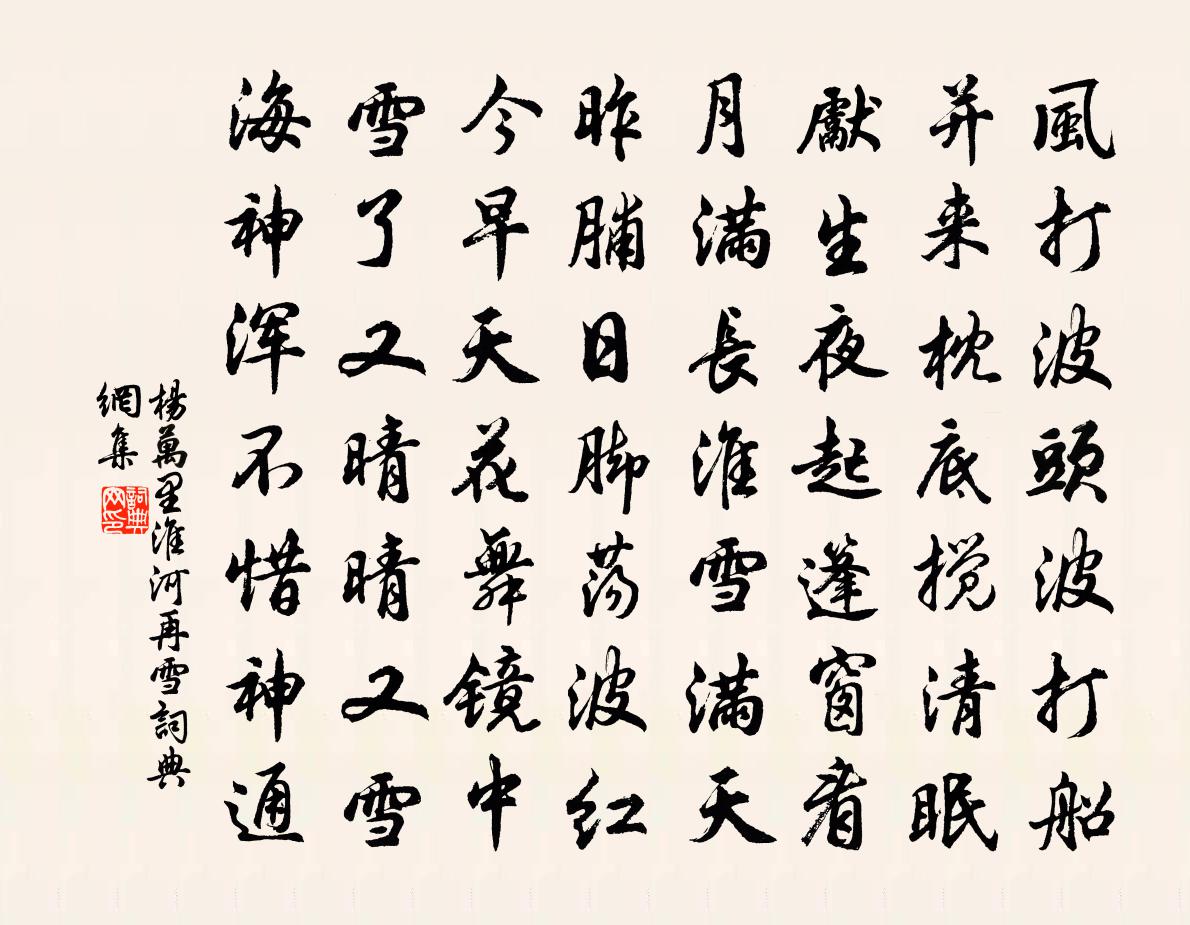 風打波頭波打船
并来枕底搅清眠
獻生夜起篷窗看
月滿長淮雪滿天
昨脯日脚荡波红
今早天花舞镜中
雪了又晴晴又雪
海神浑不惜神通
楊萬里淮河再雪詞典
網集
詞典
网印